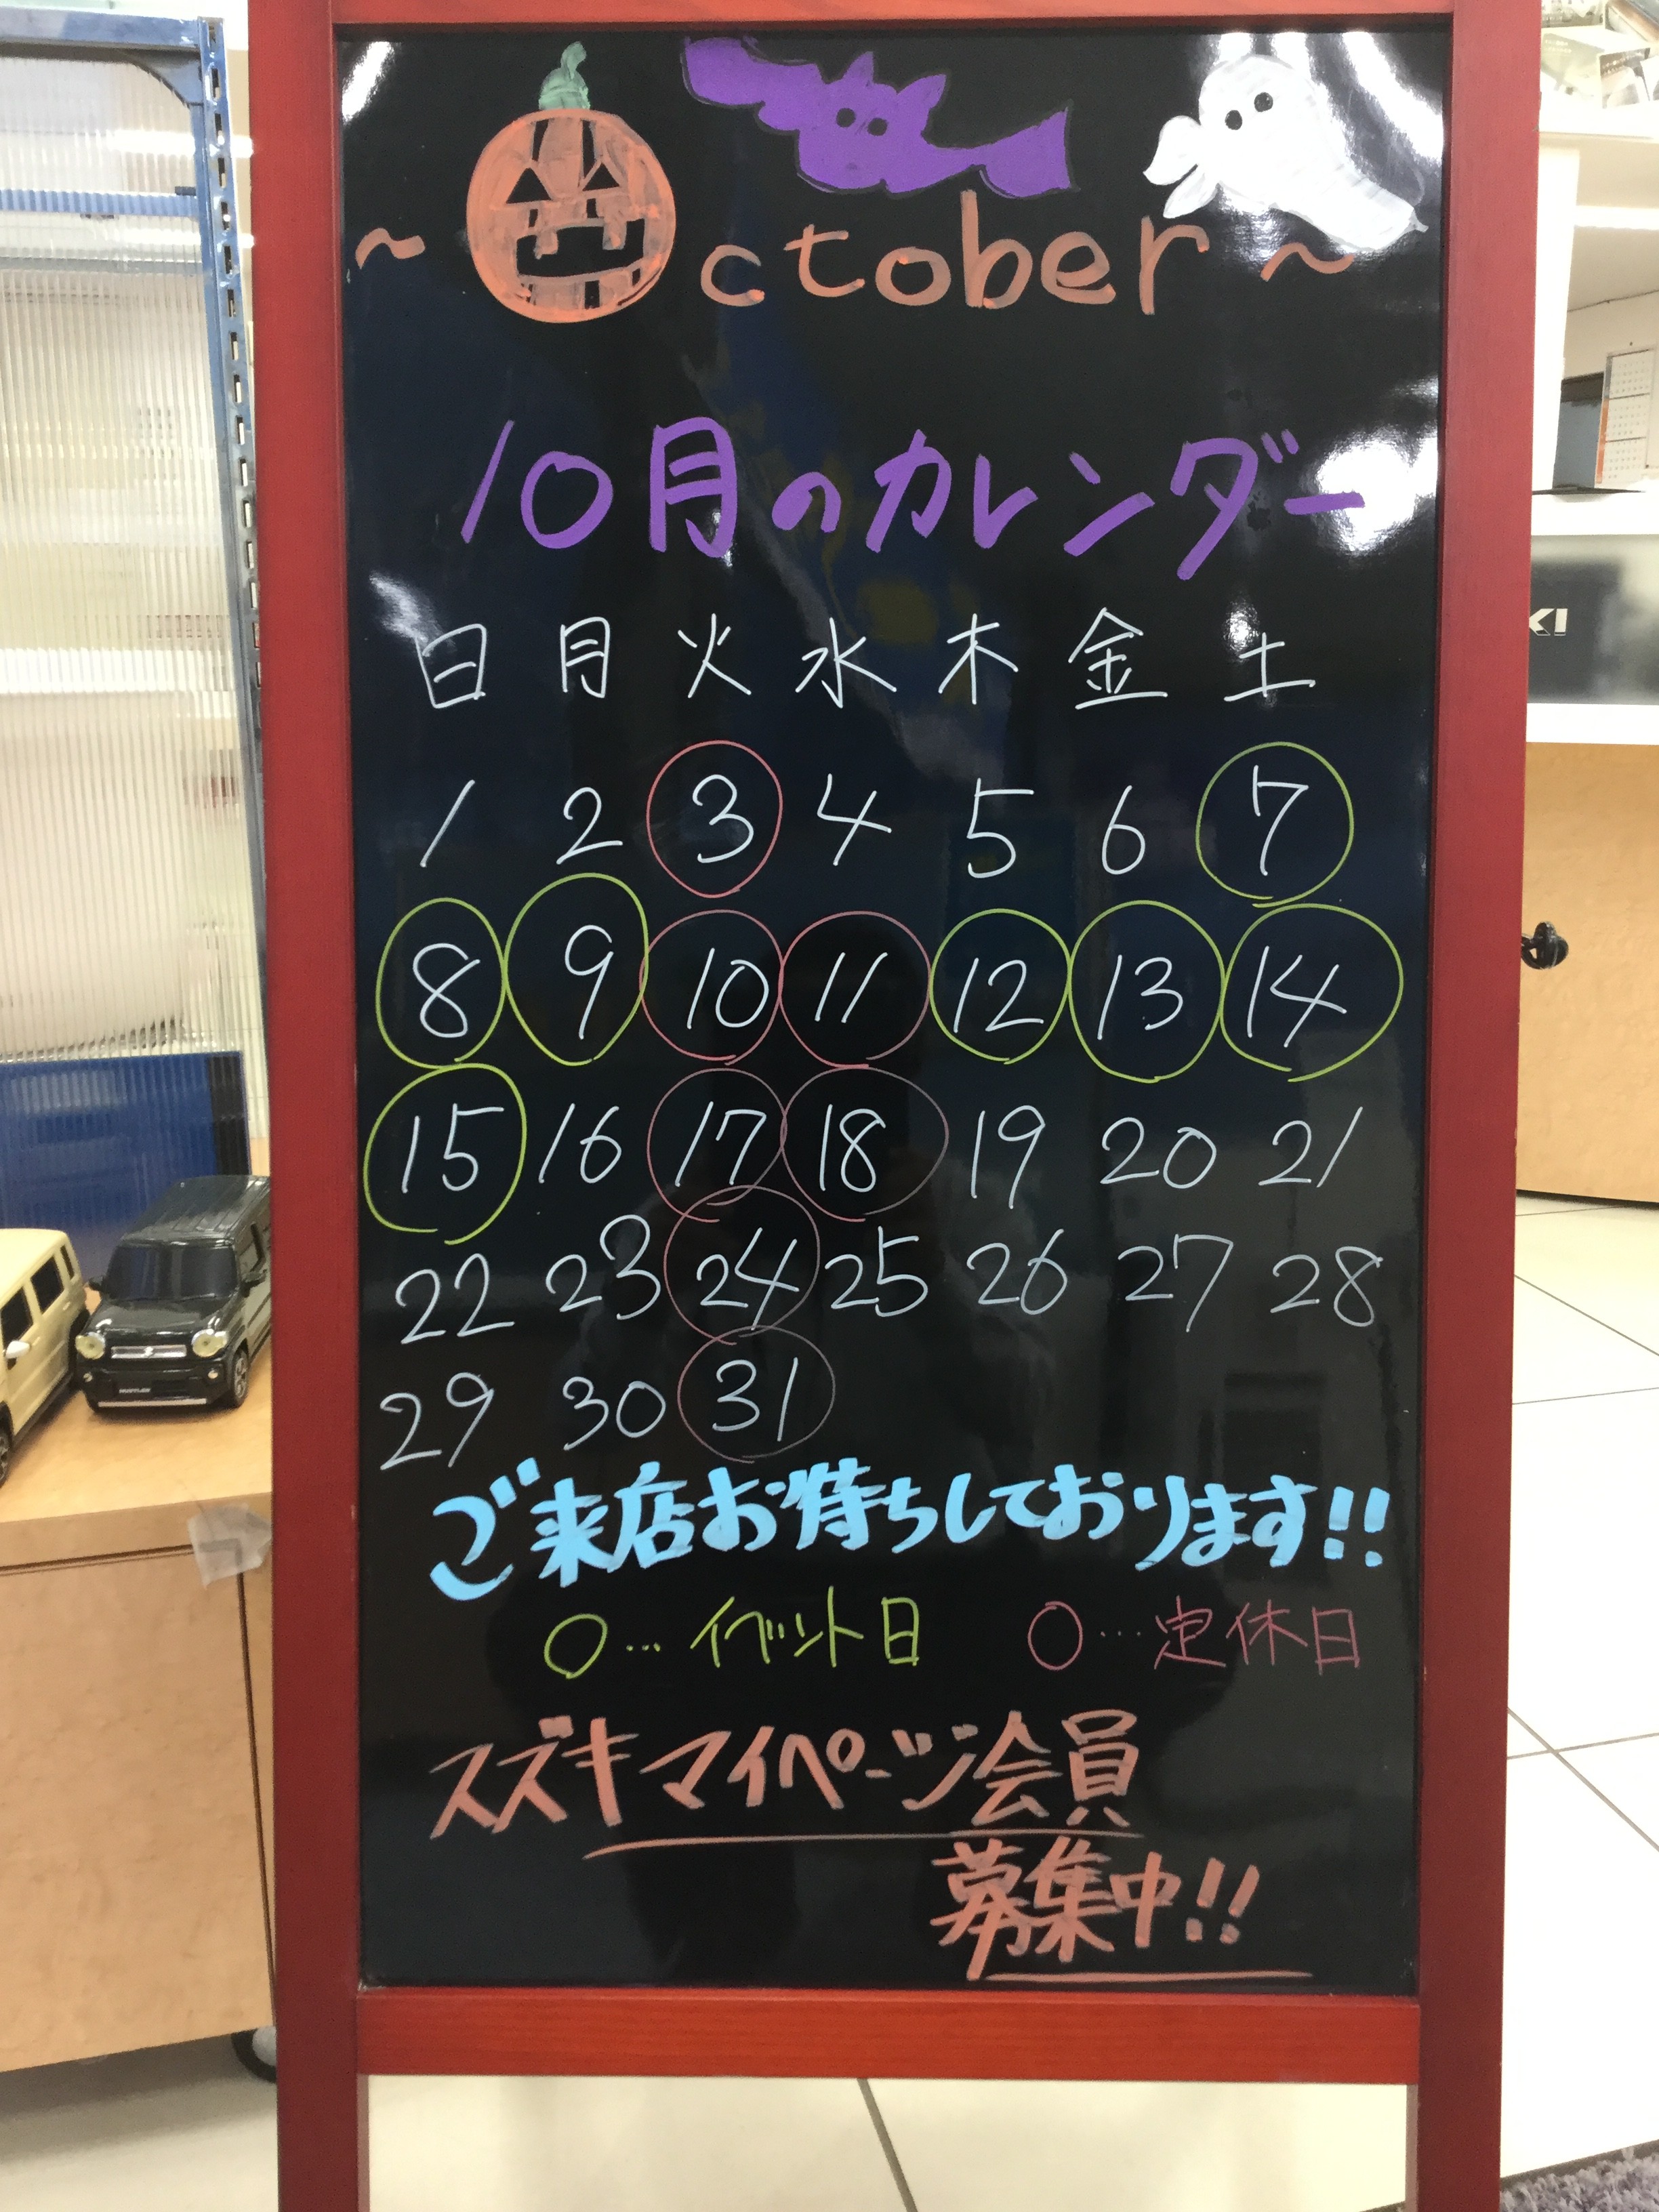 ~ October ~
10月のカレンダー
日 月 火 水 木 金 土
1 2 3 4 5 6 7
8 9 10 11 12 13 14
15 16 17 18 19 20 21
22 23 24 25 26 27 28
29 30 31
ご来店お待ちしております!!
○…イベント日 ○…定休日
スズキマイページ会員
募集中!!
KI